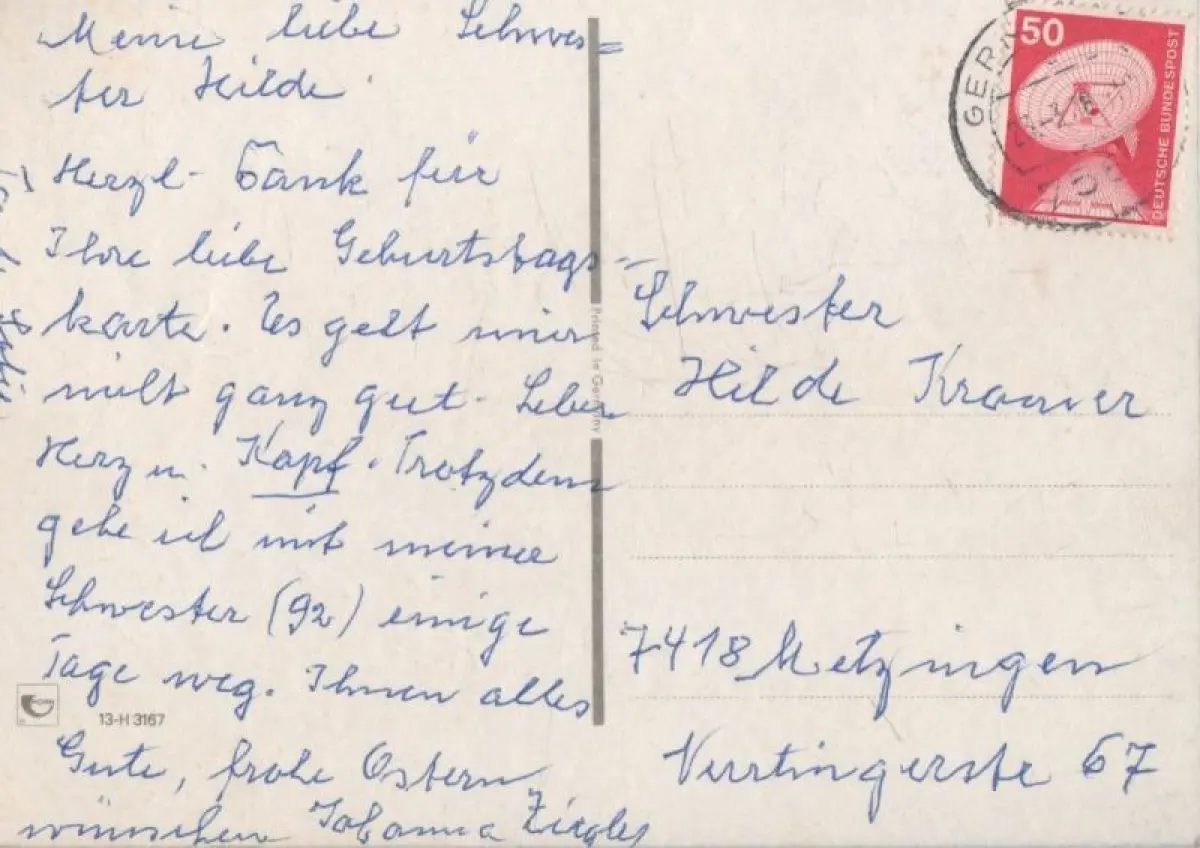 Meine liebe Schwes=
ter Hilde.
Herzl. Dank für
Ihre liebe Geburtstags-
karte. Es geht mir
nicht ganz gut. Leber
Herz u. Kopf. Trotzdem
gehe ich mit meiner
Schwester (92) einige
Tage weg. Ihnen alles
Gute, frohe Ostern
wünschen Johanna Ziegler
13-H 3167
Printed in Germany
50
DEUTSCHE BUNDESPOST
GER
Schwester
Hilde Kramer
7418 Metzingen
Nürtingerste 67